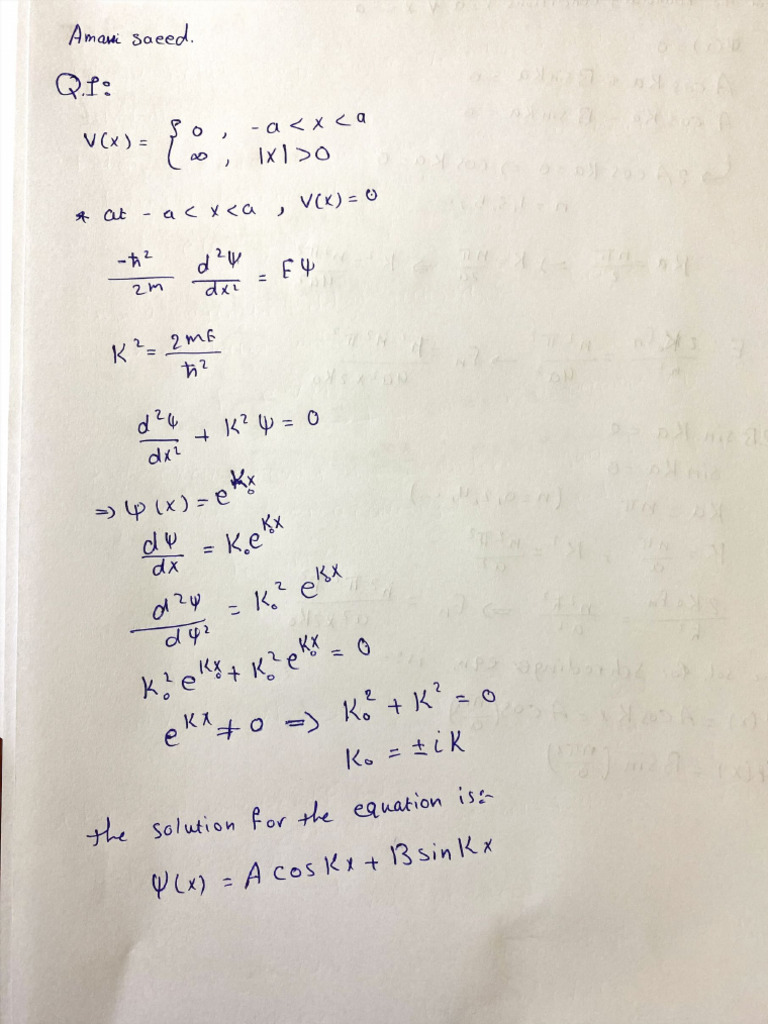 Amani saeed.
Q.1:
V(x) = { 0 , -a < x < a
∞ , |x| > 0
* at -a < x < a , V(x) = 0
-ħ²/2m d²Ψ/dx² = EΨ
K² = 2mE/ħ²
d²Ψ/dx² + K²Ψ = 0
⇒ Ψ(x) = e^(K₀x)
dΨ/dx = K₀e^(K₀x)
d²Ψ/dΨ² = K₀² e^(K₀x)
K₀² e^(K₀x) + K₀² e^(K₀x) = 0
e^(Kx) ≠ 0 ⇒ K₀² + K² = 0
K₀ = ±iK
the solution for the equation is:-
Ψ(x) = A cos Kx + B sin Kx